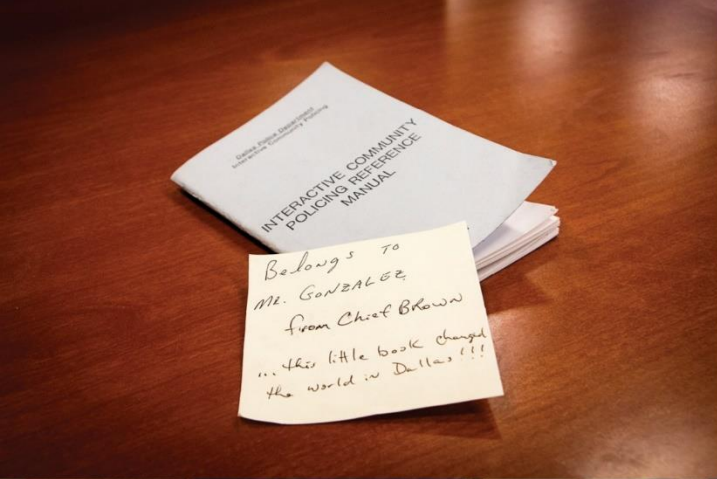 Dallas Police Department
Interactive Community Policing
INTERACTIVE COMMUNITY
POLICING REFERENCE
MANUAL
Belongs TO
MR. GONZALEZ
from Chief BROWN
... this little book changed
the world in Dallas!!!